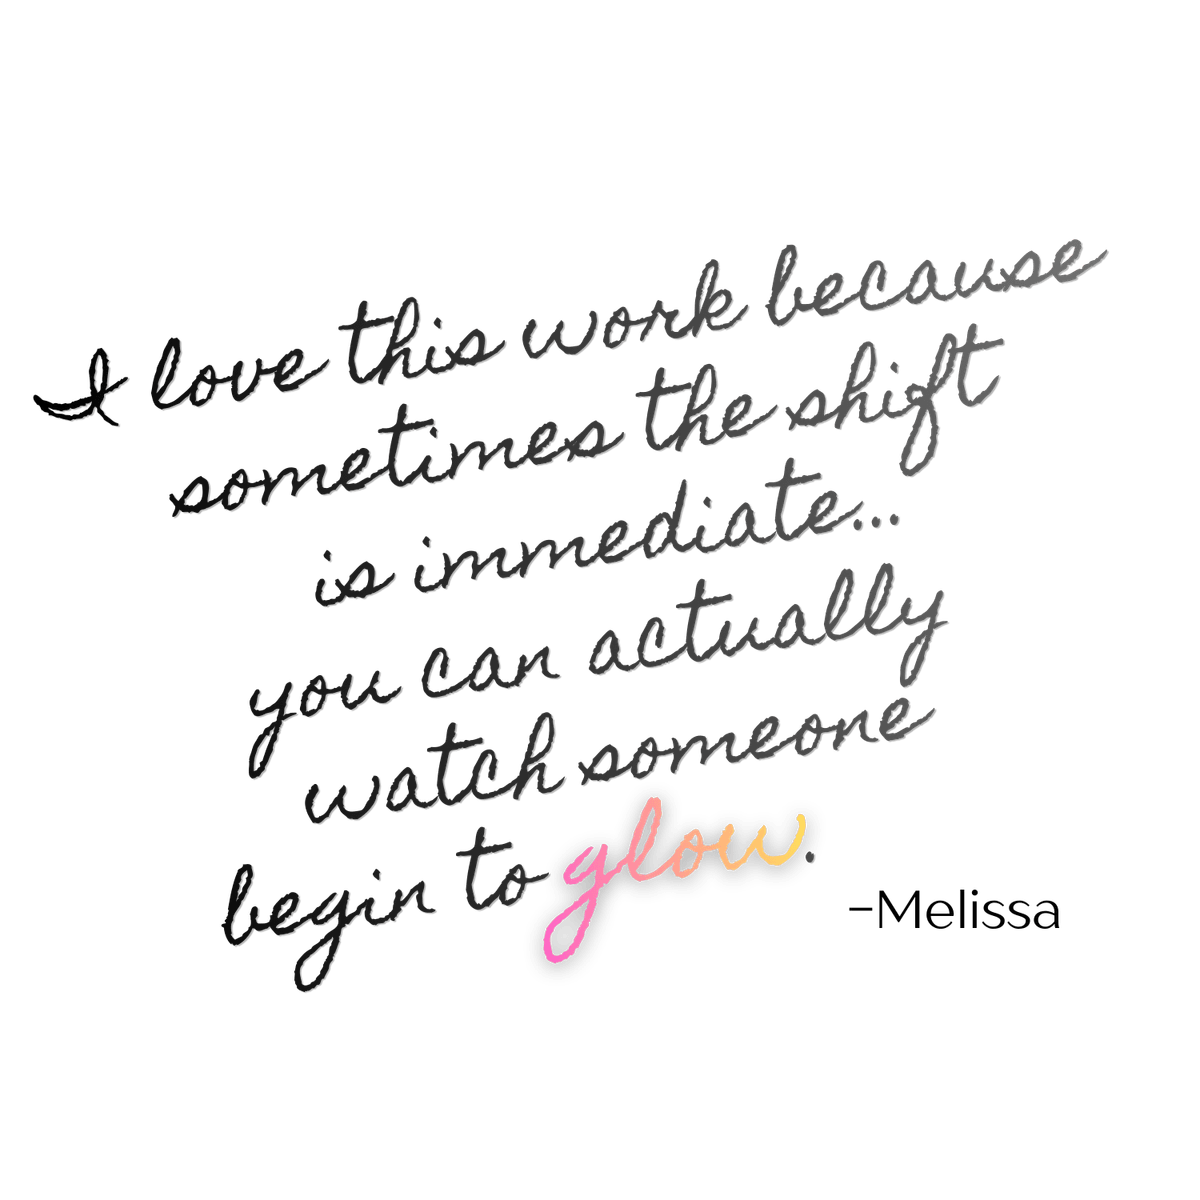 I love this work because
sometimes the shift
is immediate...
you can actually
watch someone
begin to glow.
–Melissa